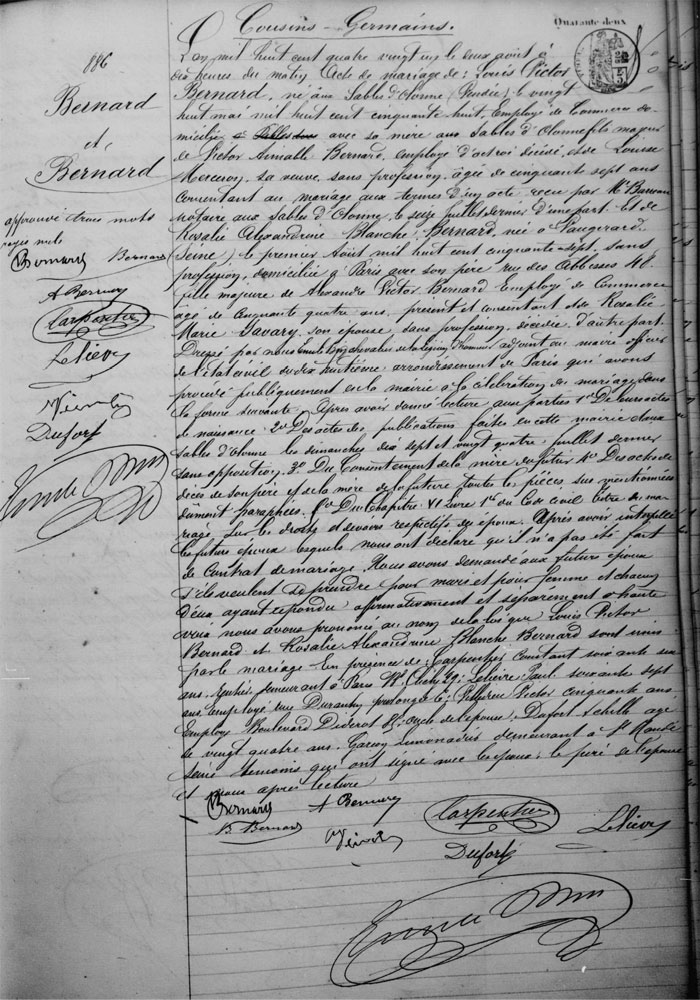 Quatante deux
Cousins - Germains.
886
Bernard
et
Bernard
approuvé trois mots
rayés nuls
Bernard Bernard
A Bernard
Carpentier
Lelièvre
Dufort
L'an mil huit cent quatre vingt un le deux août à
dix heures du matin Acte de mariage de : Louis Victor
Bernard, né aux Sables d'Olonne (Vendée) le vingt
huit mai mil huit cent cinquante huit, Employé de Commerce do-
micilié avec sa mère aux Sables d'Olonne fils majeur
de Victor Aimable Bernard, employé d'octroi décédé, et de Louise
Merceron, sa veuve, sans profession, âgée de cinquante sept ans
consentant au mariage aux termes d'un acte reçu par Me
Notaire aux Sables d'Olonne, le seize juillet dernier d'une part. Et de
Rosalie Alexandrine Blanche Bernard, née à Vaugirard
Seine) le premier Août mil huit cent cinquante sept, sans
profession, domiciliée à Paris avec son père rue des Abbesses 48.
fille majeure de Alexandre Victor Bernard Employé de Commerce
âgé de cinquante quatre ans, présent et consentant et de Rosalie
Marie Savary, son épouse sans profession, décédée, d'autre part.
Dressé par nous Emile chevalier de la Légion d'honneur adjoint au maire officier
de l'état civil du dix huitième arrondissement de Paris qui avons
procédé publiquement en la mairie à la célébration du mariage dans
la forme suivante : Après avoir donné lecture aux parties 1o De leurs actes
de naissance 2o Des actes des publications faites en cette mairie et aux
Sables d'Olonne les dimanches dix sept et vingt quatre juillet dernier
sans opposition. 3o Du Consentement de la mère du futur 4o Des actes de
décès de son père et de la mère de la future toutes les pièces sus mentionnées
dûment paraphées. 5o Du Chapitre VI Livre 1er du Code civil titre du ma-
riage, Sur les droits et devoirs respectifs des époux. Après avoir interpellé
les futurs époux lesquels nous ont déclaré qu'il n'a pas été fait
de Contrat de mariage. Nous avons demandé aux futurs époux
s'ils veulent se prendre pour mari et pour femme et chacun
d'eux ayant répondu affirmativement et séparément à haute
voix nous avons prononcé au nom de la loi que Louis Victor
Bernard et Rosalie Alexandrine Blanche Bernard sont unis
par le mariage En présence de Carpentier Constant soixante six
ans. demeurant à Paris 29. Lelièvre Paul soixante sept
ans employé rue Duranty prolongée 6. Victor cinquante ans
Employé Boulevard Diderot oncle de l'épouse. Dufort Achille âgé
de vingt quatre ans. Garçon limonadier demeurant à St Mandé
Seine témoins qui ont signé avec les époux, le père de l'épouse
et nous après lecture
Bernard A Bernard Carpentier Lelièvre
B. Bernard Dufort